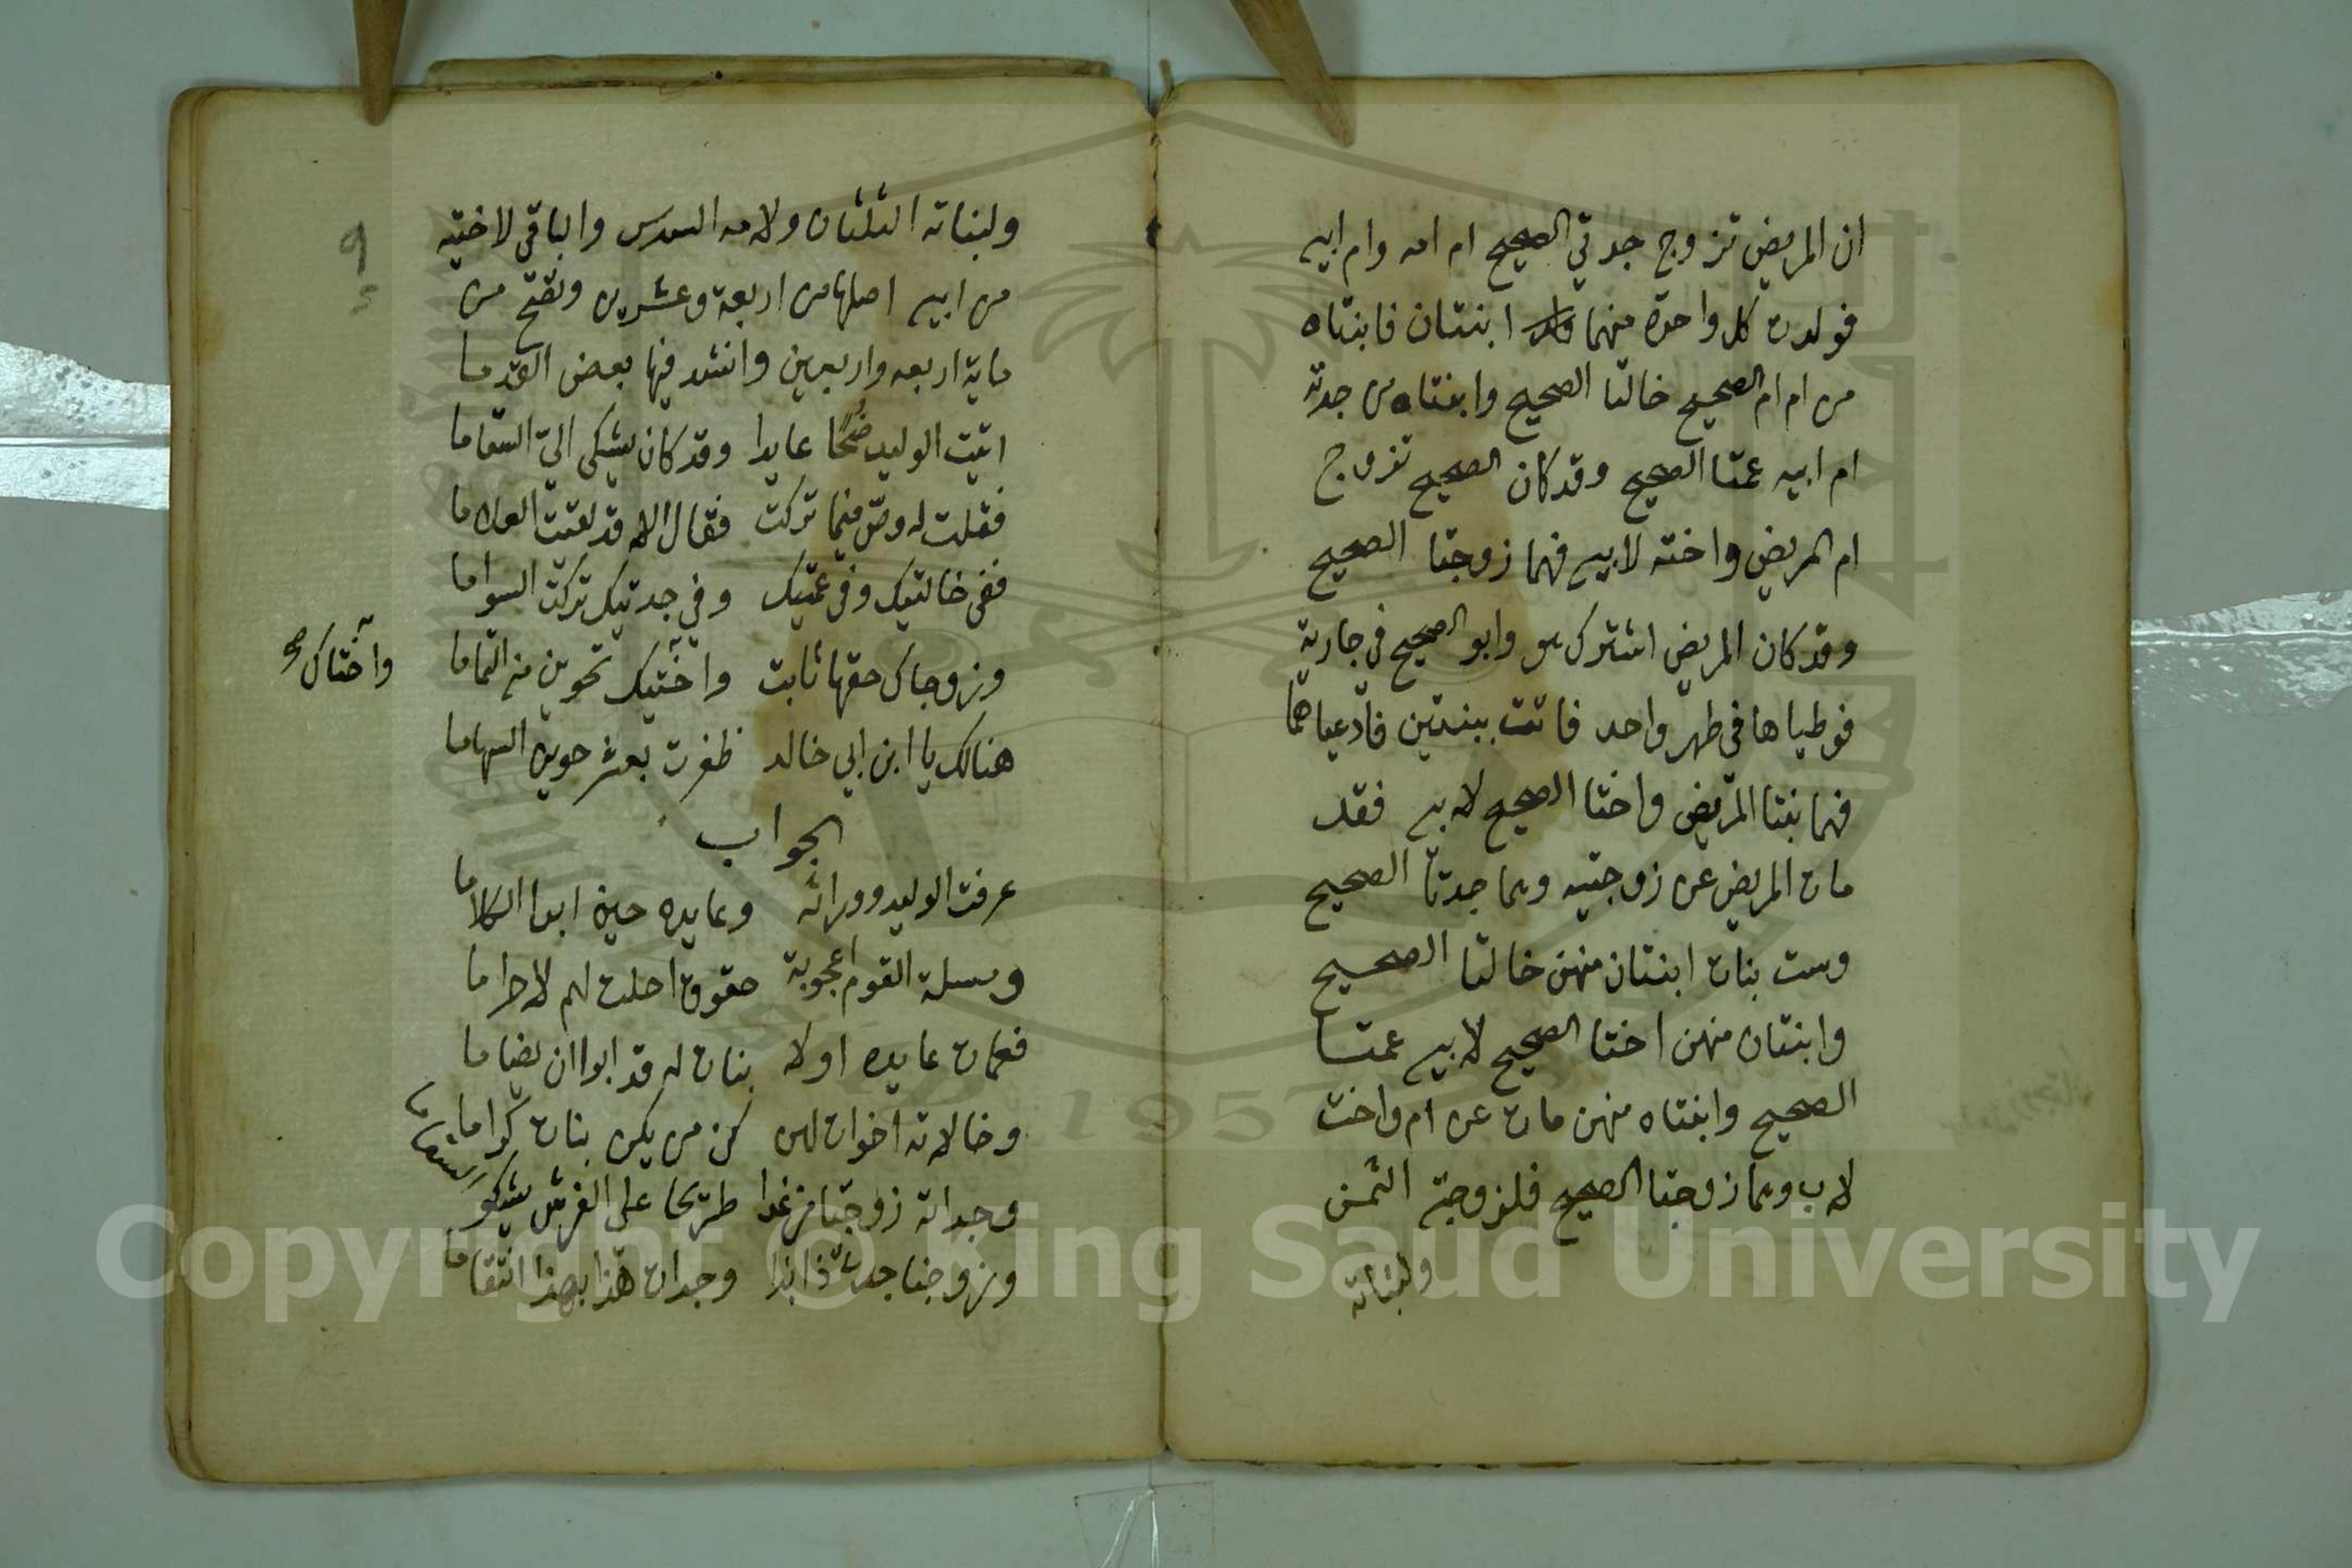 ان المريض تزوج جدتي الصحيح ام امه وام ابيه
فولدت كل واحدة منهما ابنتان فابنتاه
من ام ام الصحيح خالتا الصحيح وابنتاه من جدته
ام ابيه عمتا الصحيح وقد كان الصحيح تزوج
ام المريض واخته لابيه فهما زوجتا الصحيح
وقد كان المريض اشترك هو وابو الصحيح في جارية
فوطياها في طهر واحد فاتت ببنتين فادعياهما
فهما بنتا المريض واختا الصحيح لابيه فقد
مات المريض عن زوجتيه وهما جدتا الصحيح
وست بنات ابنتان منهن خالتا الصحيح
وابنتان منهن اختا الصحيح لابيه عمتا
الصحيح وابنتاه منهن مات عن ام واخت
لاب وهما زوجتا الصحيح فلزوجتيه الثمن
ولبناته
ولبناته الثلثان ولامه السدس والباقي لاخته
من ابيه اصلها من اربعة وعشرين وتصح من
ماية اربعه واربعين وانشد فيها بعض القدما
اتيت الوليد ضحًا عايدا وقد كان يشكى اليّ السقاما
فقلت له وصّ فيما تركت فقال الا قد لقتت العلاما
ففي خالتيك وفي عمتيك وفي جدتيك تركت السواما
وزوجاك حقهما ثابت واختيك تحوين منه التماما
واختاك صح
هنالك يا ابن ابي خالد ظفرت بعشر حوين السهاما
الجواب
عرفت الوليد ووراثه وعايده حين ابدا الكلاما
ومسلة القوم اعجوبة حقوق احلت لهم لا حراما
فعمات عايده اولا بنات له قد ابوا ان يضاما
وخالاته اخوات لهن كن من يكن بنات كراما
وجداته زوجتا من غدا طريحا على الفرش يشكو سقاما
وزوجتا جدت ذا بذا وجدات هذا بهذا انتقاما
٩
Copyright © King Saud University
1957